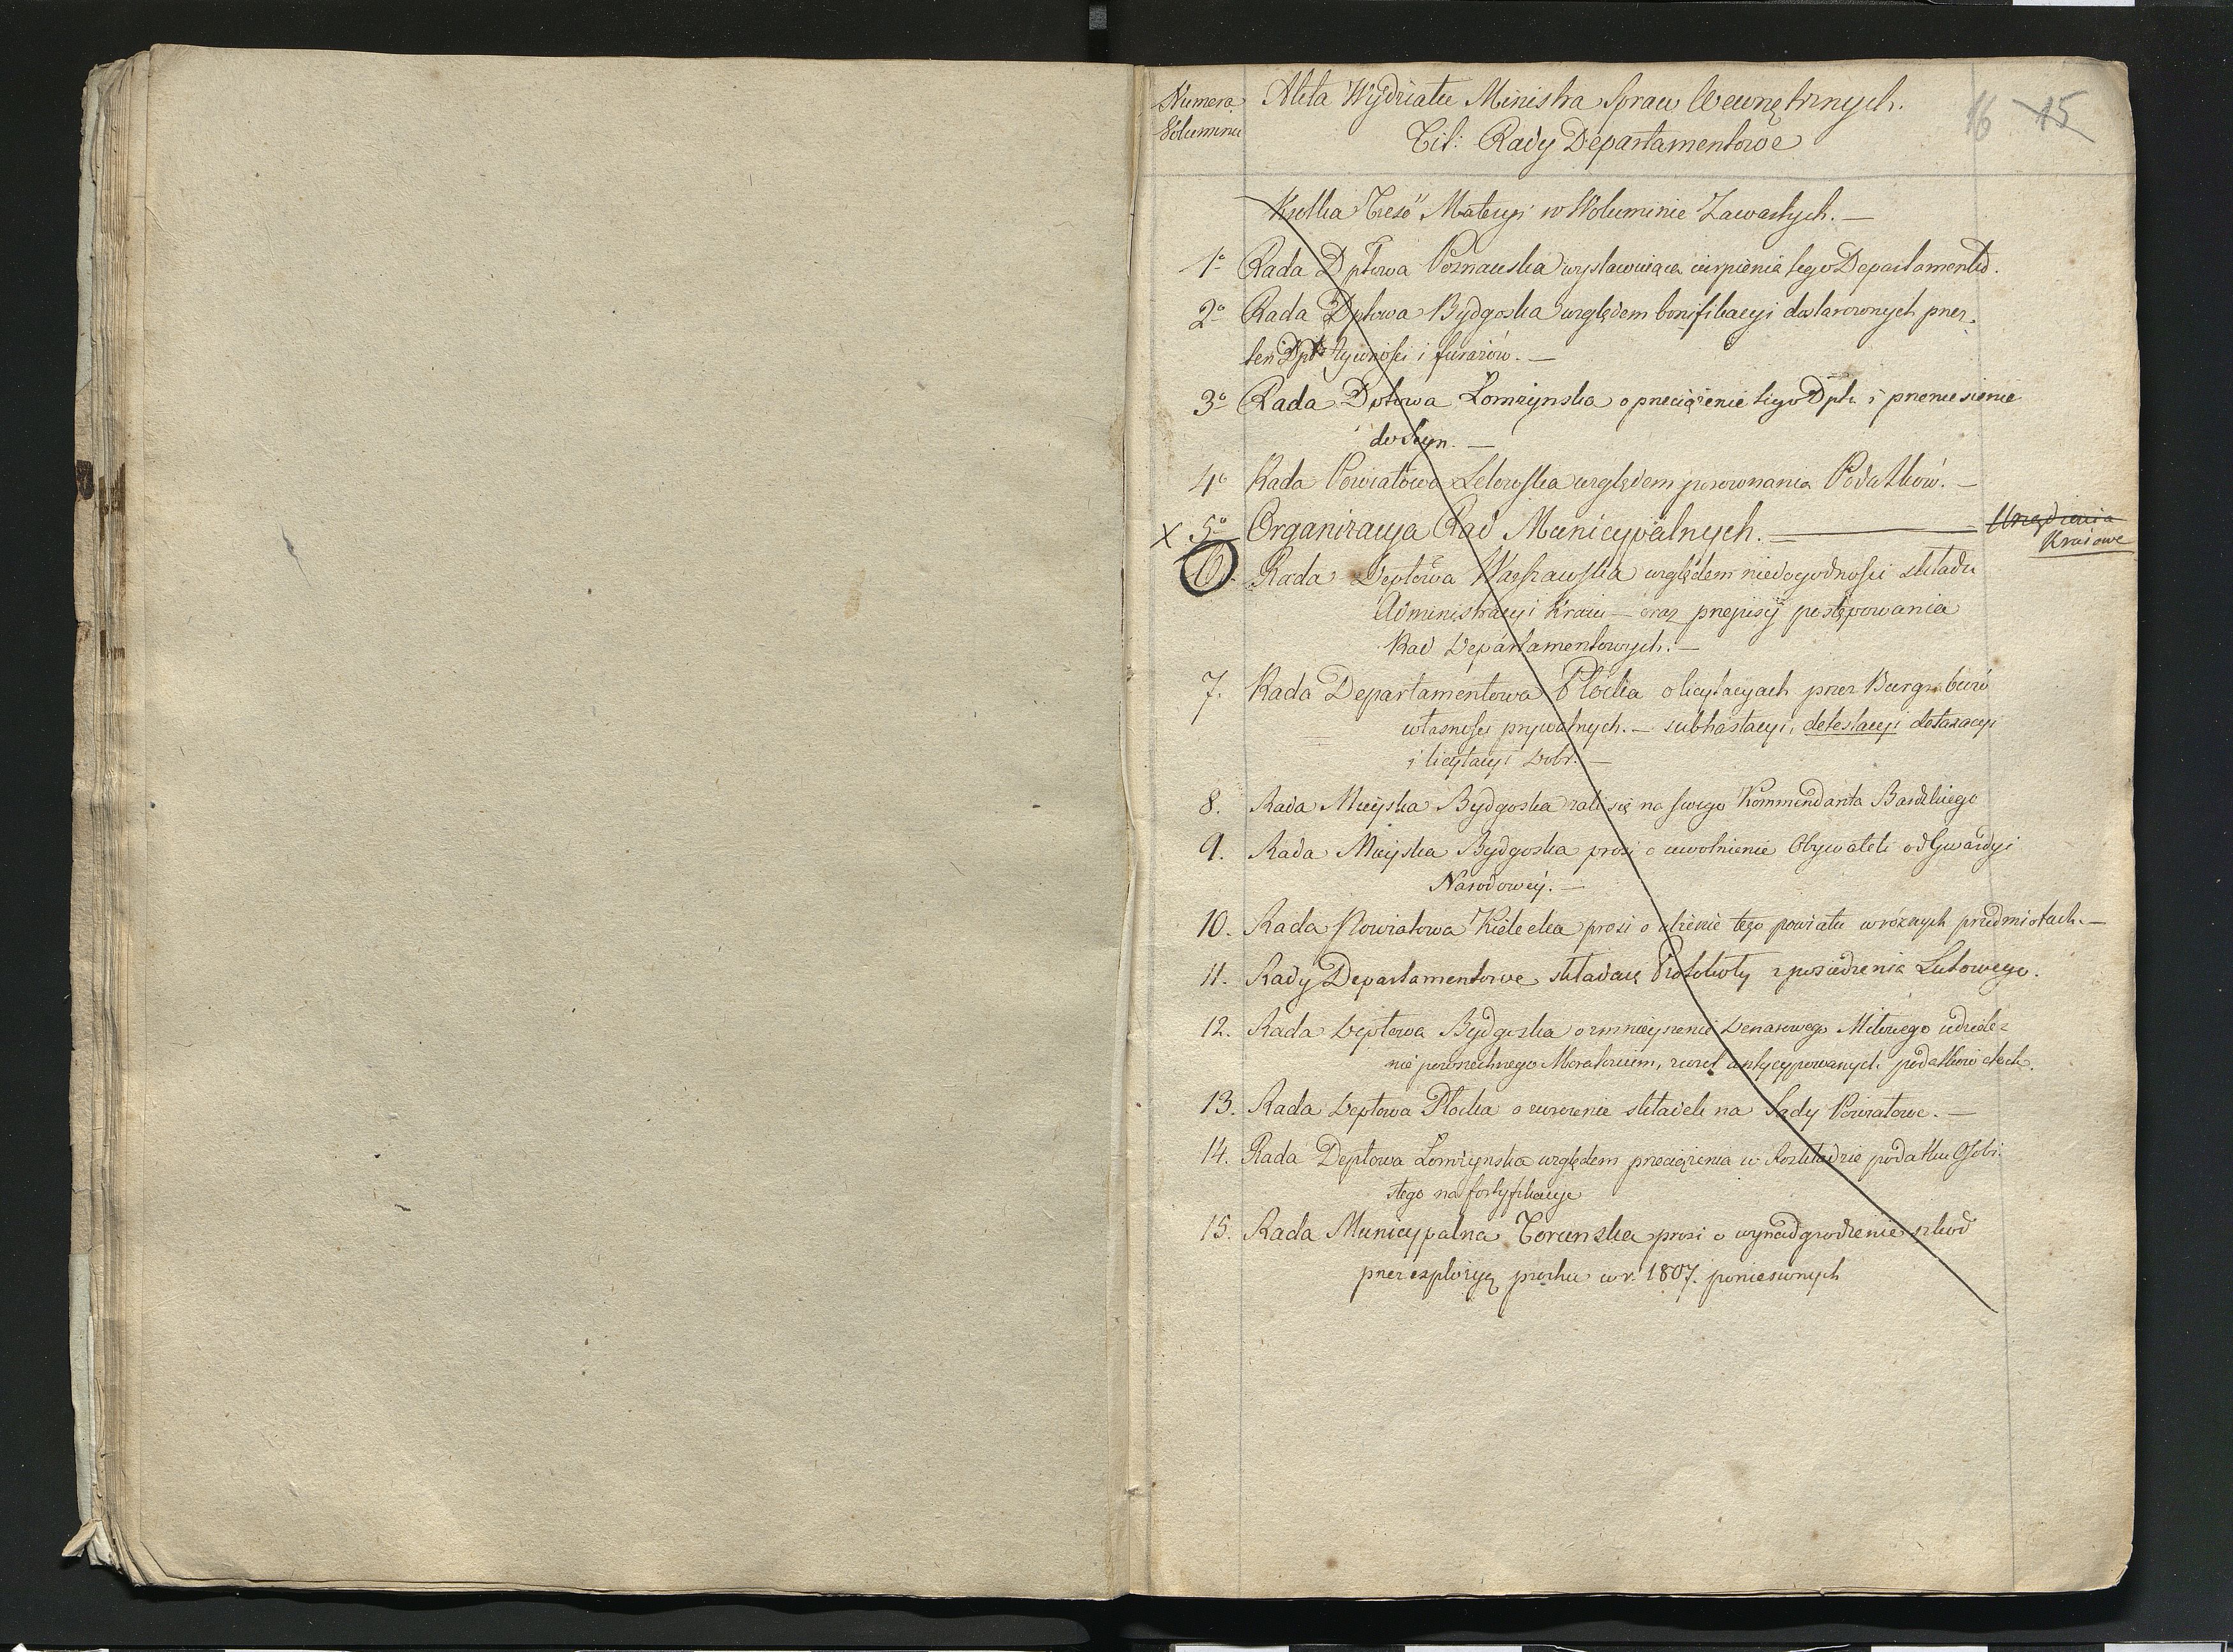 Numera
Volumina
Akta Wydziału Ministra Spraw Wewnętrznych.
16 15
Tit: Rady Departamentowe
Krotka Treść Materyi w Woluminie Zawartych. —
1º Rada Dptowa Poznanska wystawuiąca cierpienia tego Departamentu.
2º Rada Dptowa Bydgoska względem bonifikacyi dostarczonych przez
ten Dpt żywności i furażów. —
3º Rada Dptowa Łomżynska o przeciążenie tego Dptu i przeniesienie
4º Rada Powiatowa Lelowska względem porownania Podatków. —
x 5º Organizacya Rad Municypalnych. — Urządzenia
Kraiowe
6. Rada Deptowa Warszawska względem niedogodności składu
Administracyi Kraiu — oraz przepisy postępowania
Rad Departamentowych. —
7. Rada Departamentowa Płocka o licytacyach przez Burgrabiów
własności prywatnych. — subhastacyi, detestacyi detaxacyi
i licytacyi Dobr. —
8. Rada Mieyska Bydgoska żali się na swego Kommendanta
9. Rada Mieyska Bydgoska prosi o uwolnienie Obywateli od Gwardyi
Narodowey. —
10. Rada Powiatowa Kielecka prosi o ulżenie tego powiatu w roznych przedmiotach. —
11. Rady Departamentowe składaią Protokoły z posiedzenia Lutowego.
12. Rada Deptowa Bydgoska o zmnieyszenie udziele=
nie powszechnego Moratorium, zwrot antycypowanych podatków
13. Rada Deptowa Płocka o zwrocenie składek na Sądy Powiatowe. —
14. Rada Deptowa Łomżynska względem przeciążenia w Rozkładzie podatku Osobi
stego na fortyfikacye
15. Rada Municypalna Torunska prosi o wynadgrodzenie szkod
przez explozyą prochu w r. 1807. poniesionych